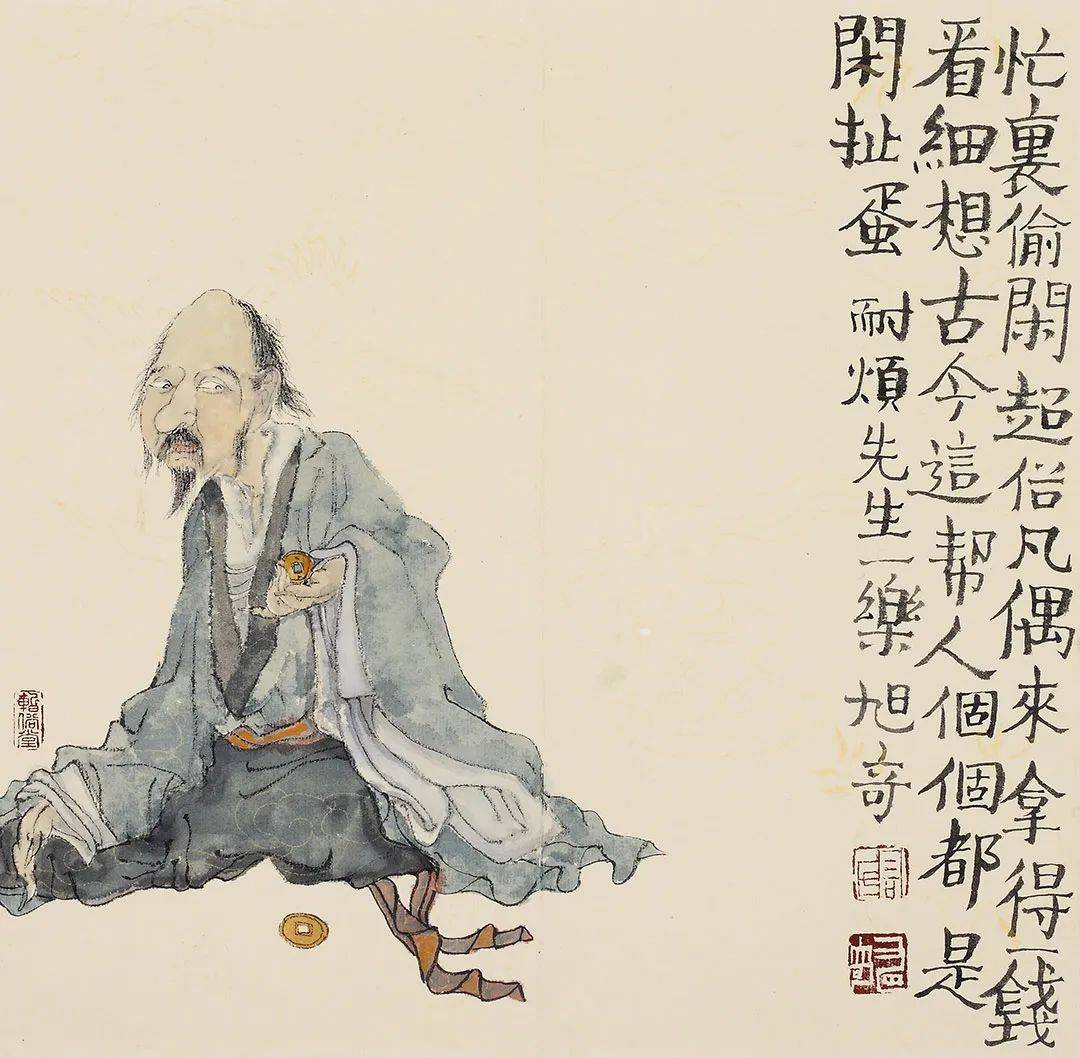 忙裏偷閑超俗凡偶來拿得一錢
看細想古今這帮人個個都是
閑扯蛋 耐煩先生一樂 旭奇
暫俗堂